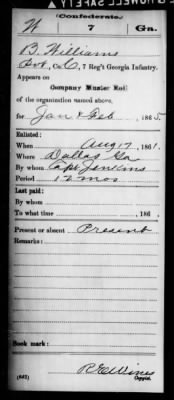 (Confederate.)
W 7 Ga.
B. Williams
Pvt, Co. C, 7 Reg't Georgia Infantry.
Appears on
Company Muster Roll
of the organization named above,
for Jan & Feb, 1865.
Enlisted:
When Aug 17, 1861.
Where Dallas Ga
By whom Capt Jenkins
Period 12 mos
Last paid:
By whom
To what time , 186 .
Present or absent Present
Remarks:
Book mark:
(642) Copyist.